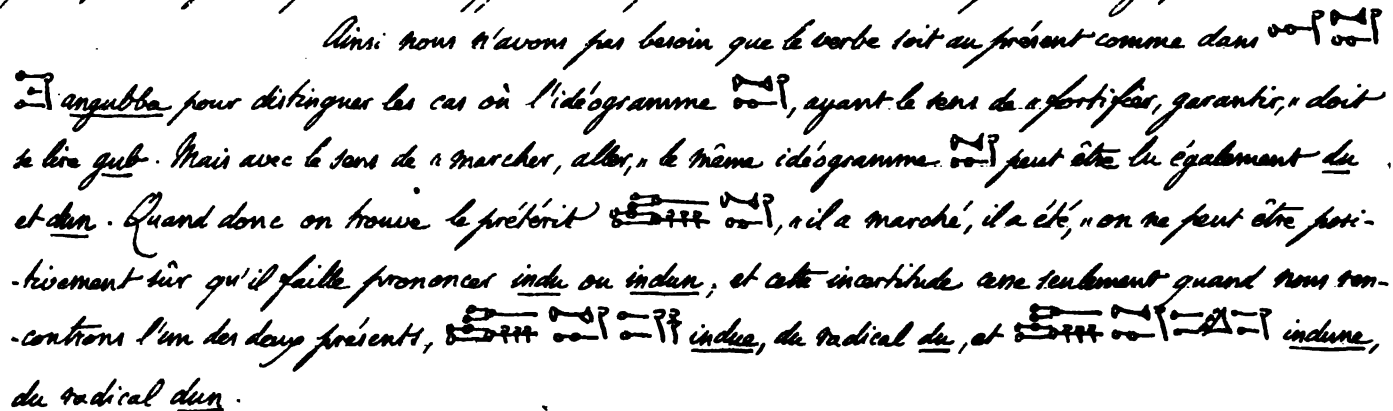 Ainsi nous n'avons pas besoin que le verbe soit au présent comme dans
angubba pour distinguer les cas où l'idéogramme , ayant le sens de « fortifier, garantir, » doit
se lire gub. Mais avec le sens de « marcher, aller, » le même idéogramme peut être lu également du
et dun. Quand donc on trouve le prétérit , « il a marché, il a été, » on ne peut être posi-
-tivement sûr qu'il faille prononcer indu ou indun, et cette incertitude cesse seulement quand nous ren-
-controns l'un des deux présents, indue, du radical du, et indune,
du radical dun.